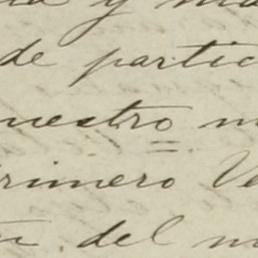 y
de partic
nuestro m
rimero Ve
del m